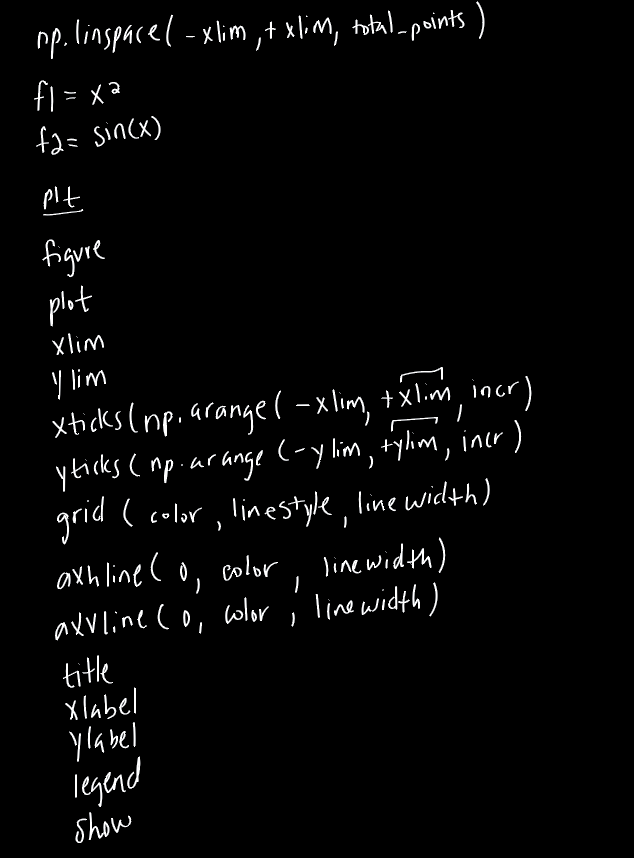 np.linspace(-xlim,+xlim, total_points)
f1 = x²
f2= sin(x)
plt
figure
plot
xlim
ylim
xticks(np.arange(-xlim, +xlim, incr)
yticks(np.arange(-ylim, +ylim, incr)
grid (color, linestyle, linewidth)
axhline(0, color, linewidth)
axvline(0, color, linewidth)
title
xlabel
ylabel
legend
show